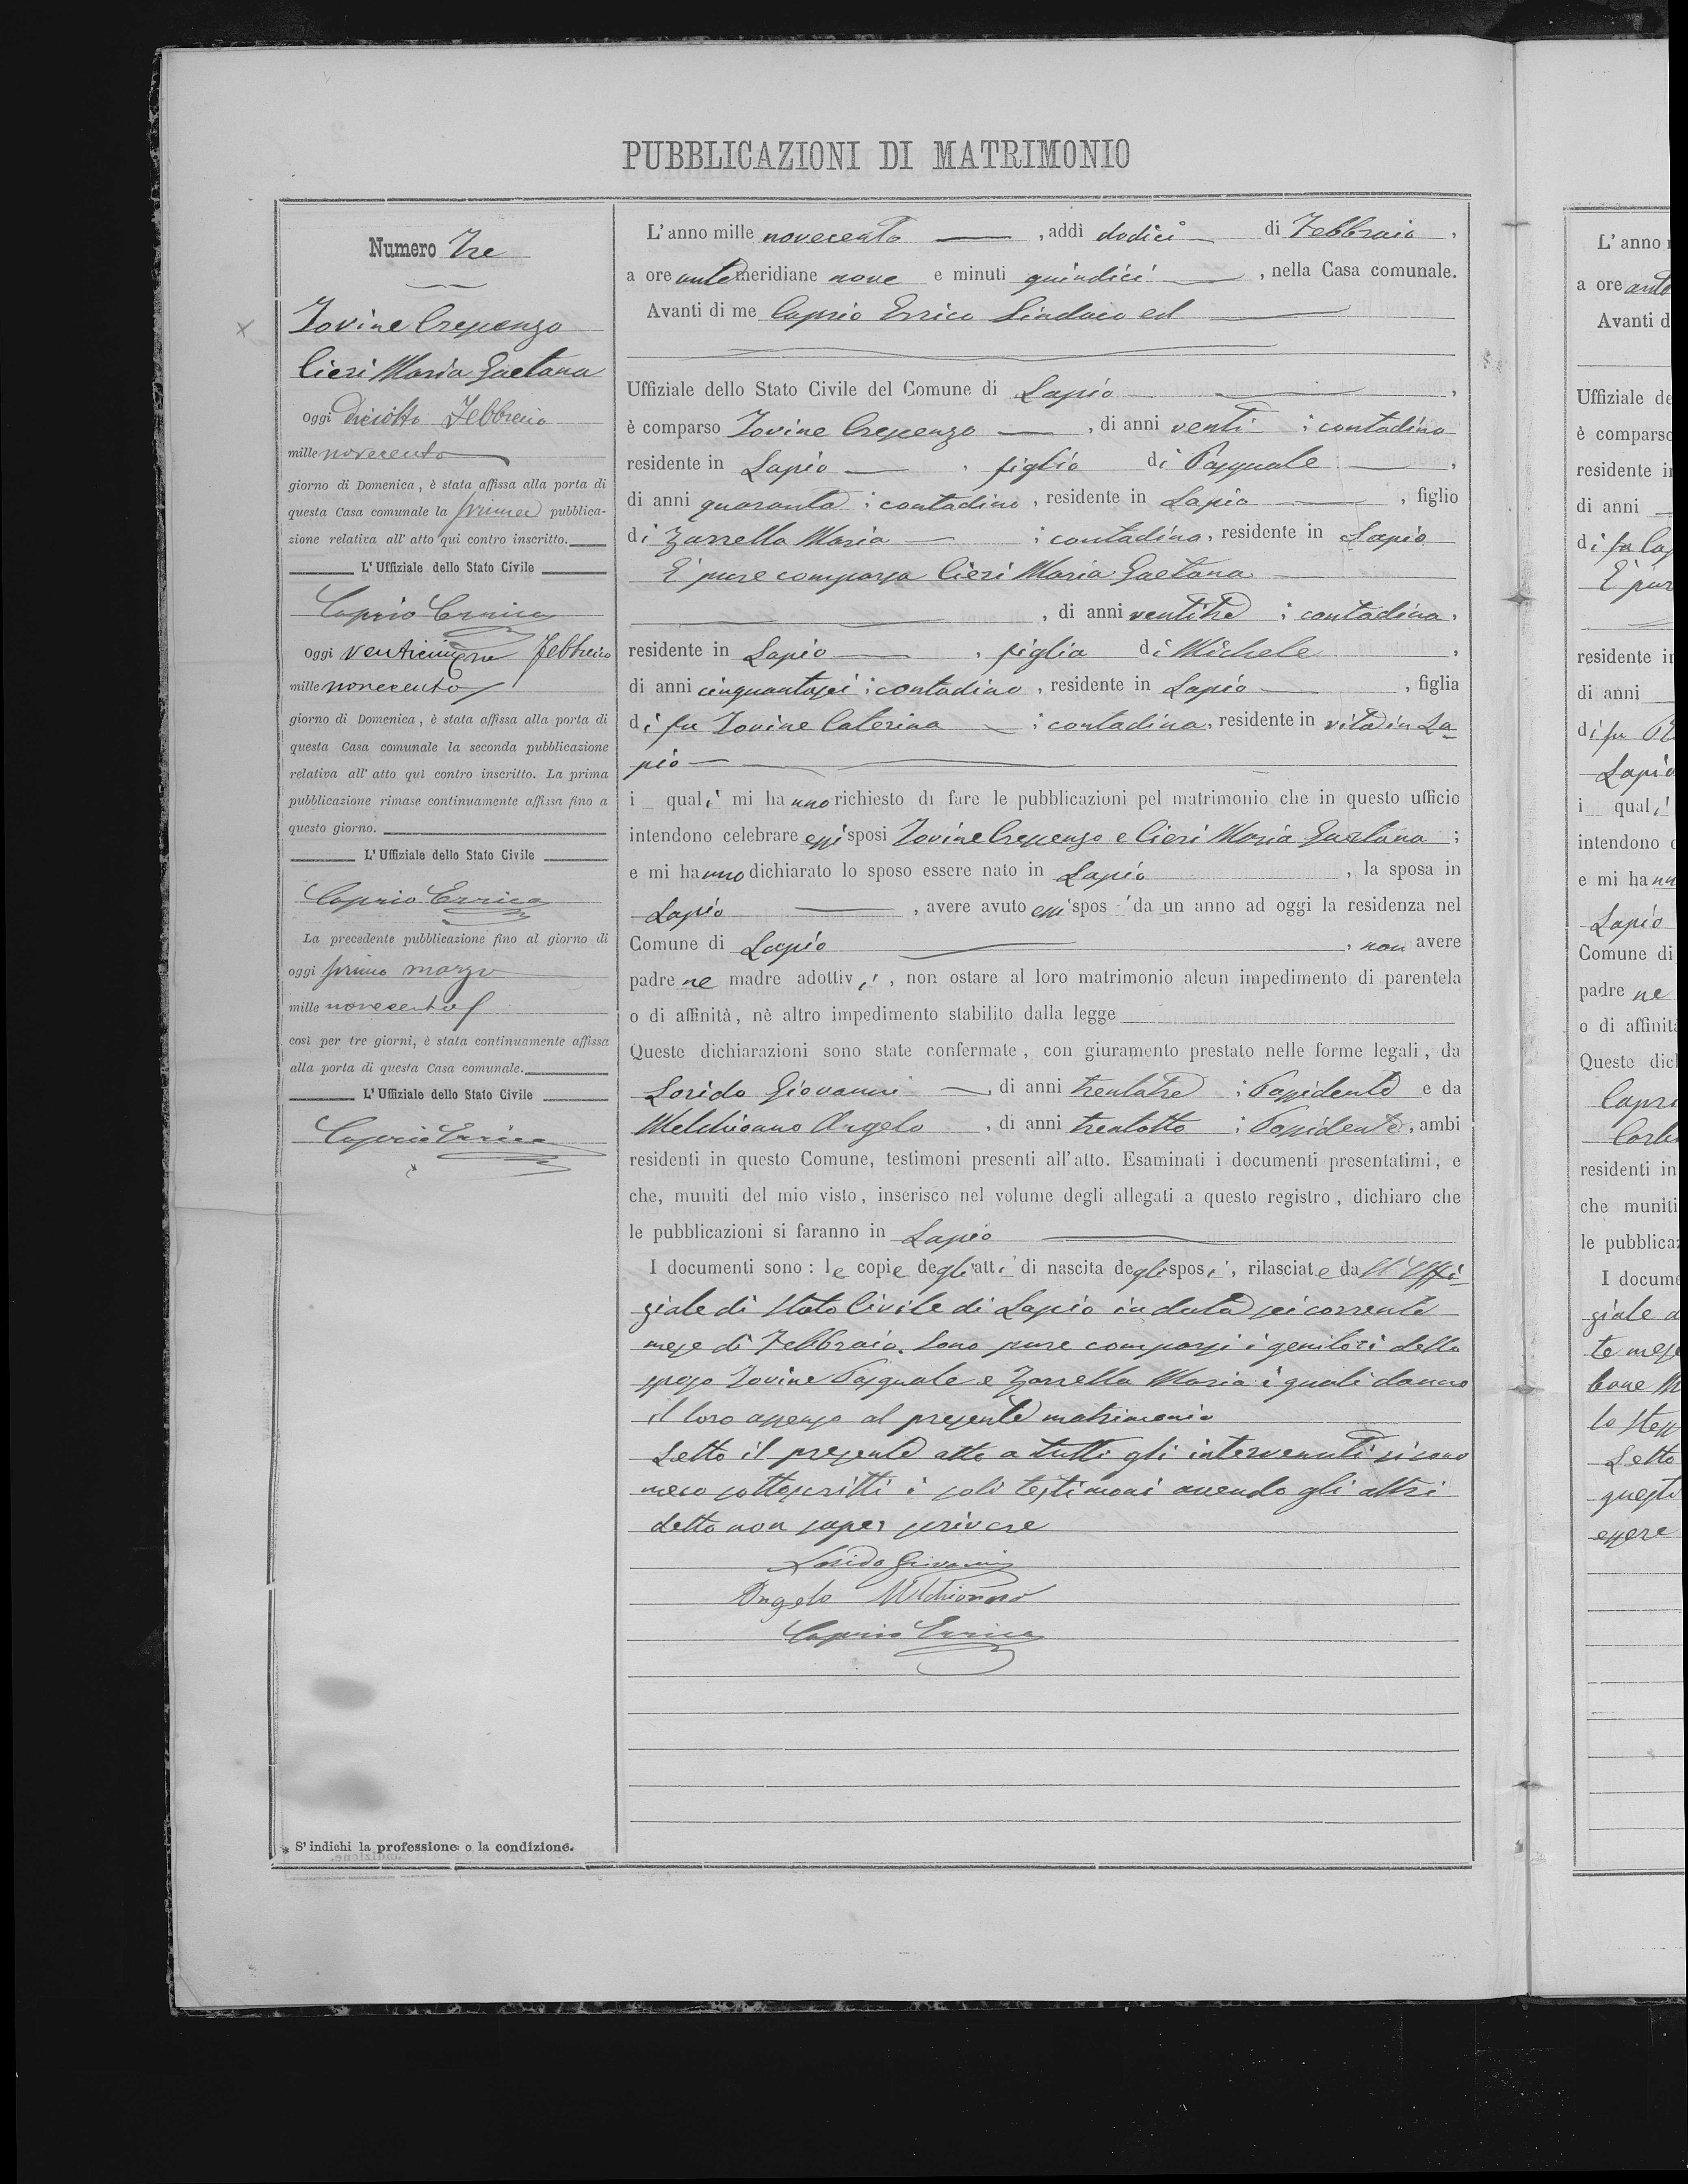 PUBBLICAZIONI DI MATRIMONIO
Numero Tre
Iovine Crescenzo
Cieri Maria Gaetana
Oggi diciotto Febbraio
mille novecento
giorno di Domenica, è stata affissa alla porta di
questa Casa comunale la prima pubblica-
zione relativa all'atto qui contro inscritto.
L'Uffiziale dello Stato Civile
Caprio Errico
Oggi venticinque Febbraio
mille novecento
giorno di Domenica, è stata affissa alla porta di
questa Casa comunale la seconda pubblicazione
relativa all'atto qui contro inscritto. La prima
pubblicazione rimase continuamente affissa fino a
questo giorno.
L'Uffiziale dello Stato Civile
Caprio Errico
La precedente pubblicazione fino al giorno di
oggi primo marzo
mille novecento
così per tre giorni, è stata continuamente affissa
alla porta di questa Casa comunale.
L'Uffiziale dello Stato Civile
Caprio Errico
* S'indichi la professione o la condizione.
L'anno mille novecento, addì dodici di Febbraio,
a ore antemeridiane nove e minuti quindici, nella Casa comunale.
Avanti di me Caprio Errico Sindaco ed
Uffiziale dello Stato Civile del Comune di Lapio,
è comparso Iovine Crescenzo, di anni venti; contadino
residente in Lapio, figlio di Pasquale,
di anni quaranta; contadino, residente in Lapio, figlio
di Zarrella Maria; contadina, residente in Lapio
E' pure comparsa Cieri Maria Gaetana
, di anni ventitre; contadina,
residente in Lapio, figlia di Michele,
di anni cinquantasei; contadino, residente in Lapio, figlia
di fu Iovine Caterina; contadina, residente in vita in La-
pio
i quali mi hanno richiesto di fare le pubblicazioni pel matrimonio che in questo ufficio
intendono celebrare essi sposi Iovine Crescenzo e Cieri Maria Gaetana;
e mi hanno dichiarato lo sposo essere nato in Lapio, la sposa in
Lapio, avere avuto essi sposi da un anno ad oggi la residenza nel
Comune di Lapio, non avere
padre ne madre adottivi, non ostare al loro matrimonio alcun impedimento di parentela
o di affinità, nè altro impedimento stabilito dalla legge
Queste dichiarazioni sono state confermate, con giuramento prestato nelle forme legali, da
Losido Giovanni, di anni trentatre; Possidente e da
Melchionno Angelo, di anni trentotto; Possidente, ambi
residenti in questo Comune, testimoni presenti all'atto. Esaminati i documenti presentatimi, e
che, muniti del mio visto, inserisco nel volume degli allegati a questo registro, dichiaro che
le pubblicazioni si faranno in Lapio
I documenti sono: le copie degli atti di nascita degli sposi, rilasciate dall'Uffi-
ziale di Stato Civile di Lapio in data sei corrente
mese di Febbraio. Sono pure comparsi i genitori dello
sposo Iovine Pasquale e Zarrella Maria i quali danno
il loro assenso al presente matrimonio
Letto il presente atto a tutti gli intervenuti si sono
meco sottoscritti i soli testimoni avendo gli altri
detto non saper scrivere
Losido Giovanni
Angelo Melchionno
Caprio Errico
L'anno
a ore ante
Avanti d
Uffiziale de
è comparso
residente in
di anni
di fu Cap
E' pur
residente in
di anni
di fu
Lapio
i quali
intendono c
e mi hann
Lapio
Comune di
padre ne
o di affinità
Queste dich
Capri
residenti in
che muniti
le pubblicaz
I docume
ziale d
te mese
lo stess
Letto
questo
essere